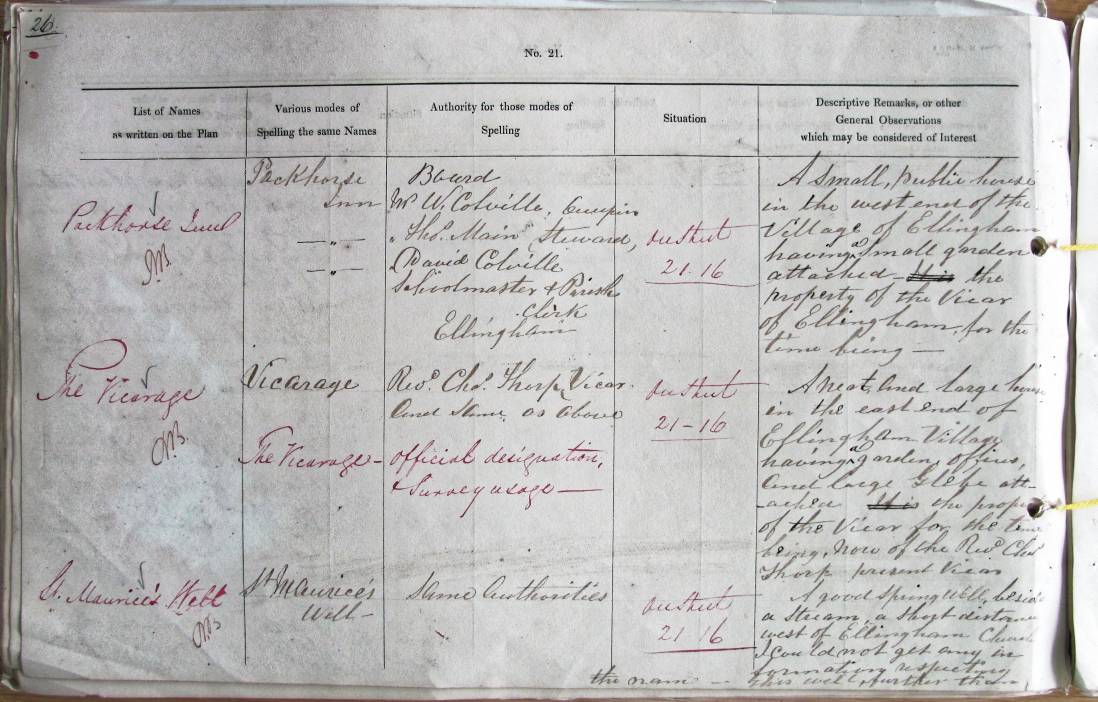 26.
No. 21.
List of Names
as written on the Plan
Various modes of
Spelling the same Names
Authority for those modes of
Spelling
Situation
Descriptive Remarks, or other
General Observations
which may be considered of Interest
Packhorse Inn
Packhorse
Inn
—"—
—"—
Board
Mr W. Colville,
" Thos. Main Steward,
David Colville
Schoolmaster & Parish
Clerk
Ellingham
21.16
A Small, public house
in the west end of the
Village of Ellingham
having a Small garden
attached — It is the
property of the Vicar
of Ellingham, for the
time being —
The Vicarage
Vicarage
The Vicarage —
Revd. Chas. Thorp, Vicar.
And Same as above
official designation,
& Survey usage —
21-16
A neat, and large house
in the east end of
Ellingham Village
having a garden, offices,
and large Glebe att-
-ached It is the property
of the Vicar for the time
being, now of the Revd. Chas
Thorp present Vicar
St. Maurice's Well
St. Maurice's
Well—
Same Authorities
21 16
A good Spring Well, beside
a Stream, a Short distance
west of Ellingham Church
I could not get any in
formation respecting
this well, further than
the name —